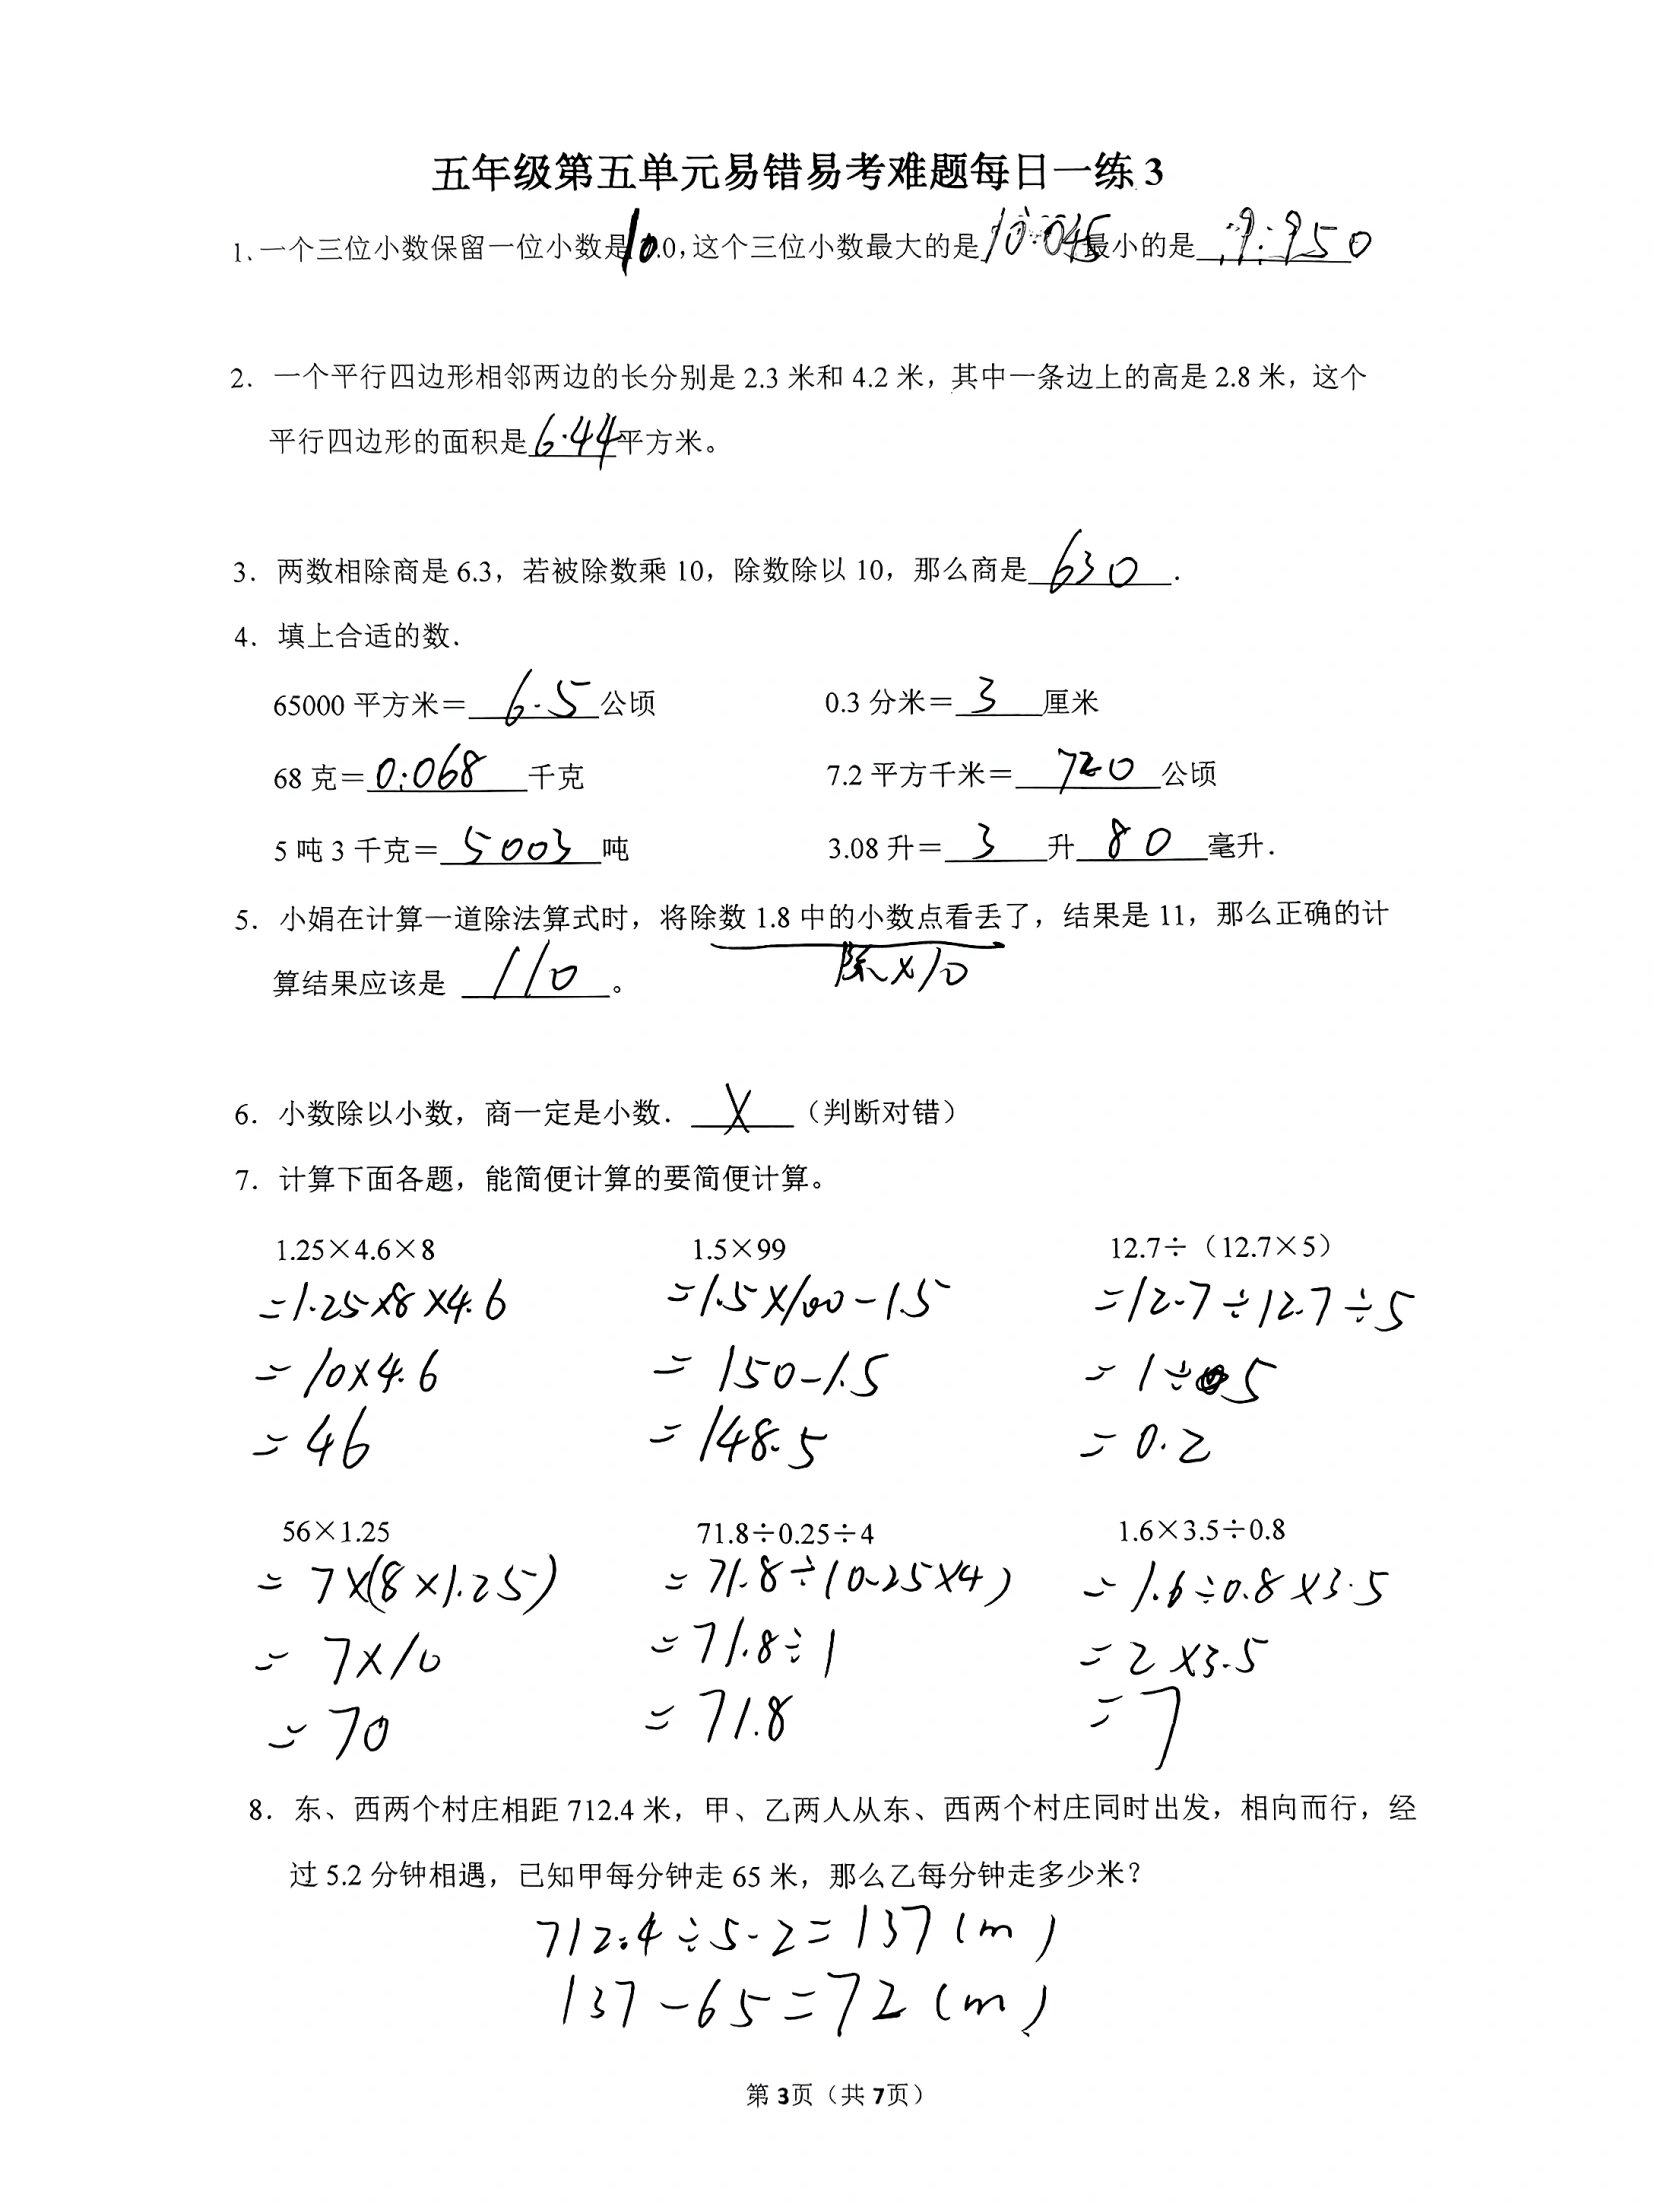 五年级第五单元易错易考难题每日一练 3
1.一个三位小数保留一位小数是10.0,这个三位小数最大的是10.045最小的是9.950
2. 一个平行四边形相邻两边的长分别是 2.3 米和 4.2 米，其中一条边上的高是 2.8 米，这个
平行四边形的面积是6.44平方米。
3. 两数相除商是 6.3，若被除数乘 10，除数除以 10，那么商是630.
4. 填上合适的数.
65000 平方米=6.5公顷 0.3 分米=3厘米
68 克=0.068千克 7.2 平方千米=720公顷
5 吨 3 千克=5003吨 3.08 升=3升80毫升.
5. 小娟在计算一道除法算式时，将除数 1.8 中的小数点看丢了，结果是 11，那么正确的计
除×10
算结果应该是 110。
6. 小数除以小数，商一定是小数. ×（判断对错）
7. 计算下面各题，能简便计算的要简便计算。
1.25×4.6×8 1.5×99 12.7÷（12.7×5）
=1.25×8×4.6 =1.5×100-1.5 =12.7÷12.7÷5
=10×4.6 =150-1.5 =1÷5
=46 =148.5 =0.2
56×1.25 71.8÷0.25÷4 1.6×3.5÷0.8
=7×(8×1.25) =71.8÷(0.25×4) =1.6÷0.8×3.5
=7×10 =71.8÷1 =2×3.5
=70 =71.8 =7
8. 东、西两个村庄相距 712.4 米，甲、乙两人从东、西两个村庄同时出发，相向而行，经
过 5.2 分钟相遇，已知甲每分钟走 65 米，那么乙每分钟走多少米？
712.4÷5.2=137(m)
137-65=72(m)
第 3页（共 7页）